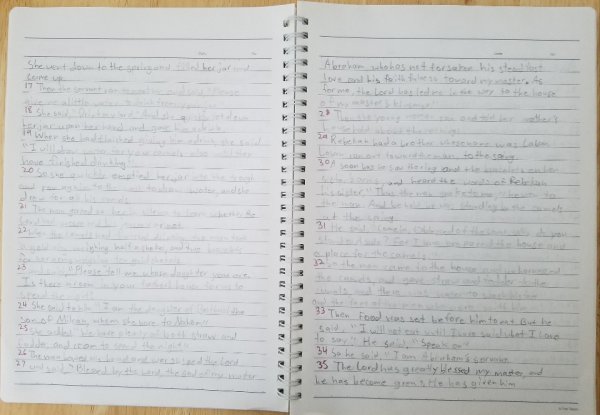 She went down to the spring and filled her jar and
came up.
17 Then the servant ran to meet her and said, "Please
give me a little water to drink from your jar"
18 She said, "Drink, my lord" And she quickly let down
her jar upon her hand and gave him a drink.
19 When she had finished giving him a drink, she said
"I will draw water for your camels also, until they
have finished drinking"
20 So she quickly emptied her jar into the trough
and ran again to the well to draw water, and she
drew for all his camels.
21 The man gazed at her in silence to learn whether the
Lord
22 When the camels had finished drinking, the man took
a gold ring weighing half a shekel, and two bracelets
for her arms weighing ten gold shekels
23 "Please tell me whose daughter you are
Is there room in your father's house for us to
spend the night"
24 She said to him "I am the daughter of Bethuel the
son of Milcah, whom she bore to Nahor"
25 She added "We have plenty of both straw and
fodder, and room to spend the night"
26 The man bowed his head and worshiped the Lord
27 and said "Blessed by the Lord, the God of my master
Abraham, who has not forsaken his steadfast
love and his faithfulness toward my master. As
for me, the Lord has led me in the way to the house
of my master's kinsmen"
28 Then the young woman ran and told her mother's
household about these things
29 Rebekah had a brother whose name was Laban
Laban ran out toward the man, to the spring.
30 As soon as he saw the ring and the bracelets on her
and heard the words of Rebekah
his sister, "Thus the man spoke to me" he went to
the man. And behold he was standing by the camels
at the spring
31 He said, "Come in, O blessed of the Lord. Why do you
stand outside? For I have prepared the house and
a place for the camels"
32 So the man came to the house and unharnessed
the camels and gave straw and fodder to the
camels and there was water to wash his feet
and the feet of the men who were with him
33 Then Food was set before him to eat. But he
said, "I will not eat until I have said what I have
to say" He said, "Speak on"
34 So he said, "I am Abraham's servant
35 The Lord has greatly blessed my master, and
he has become great. He has given him